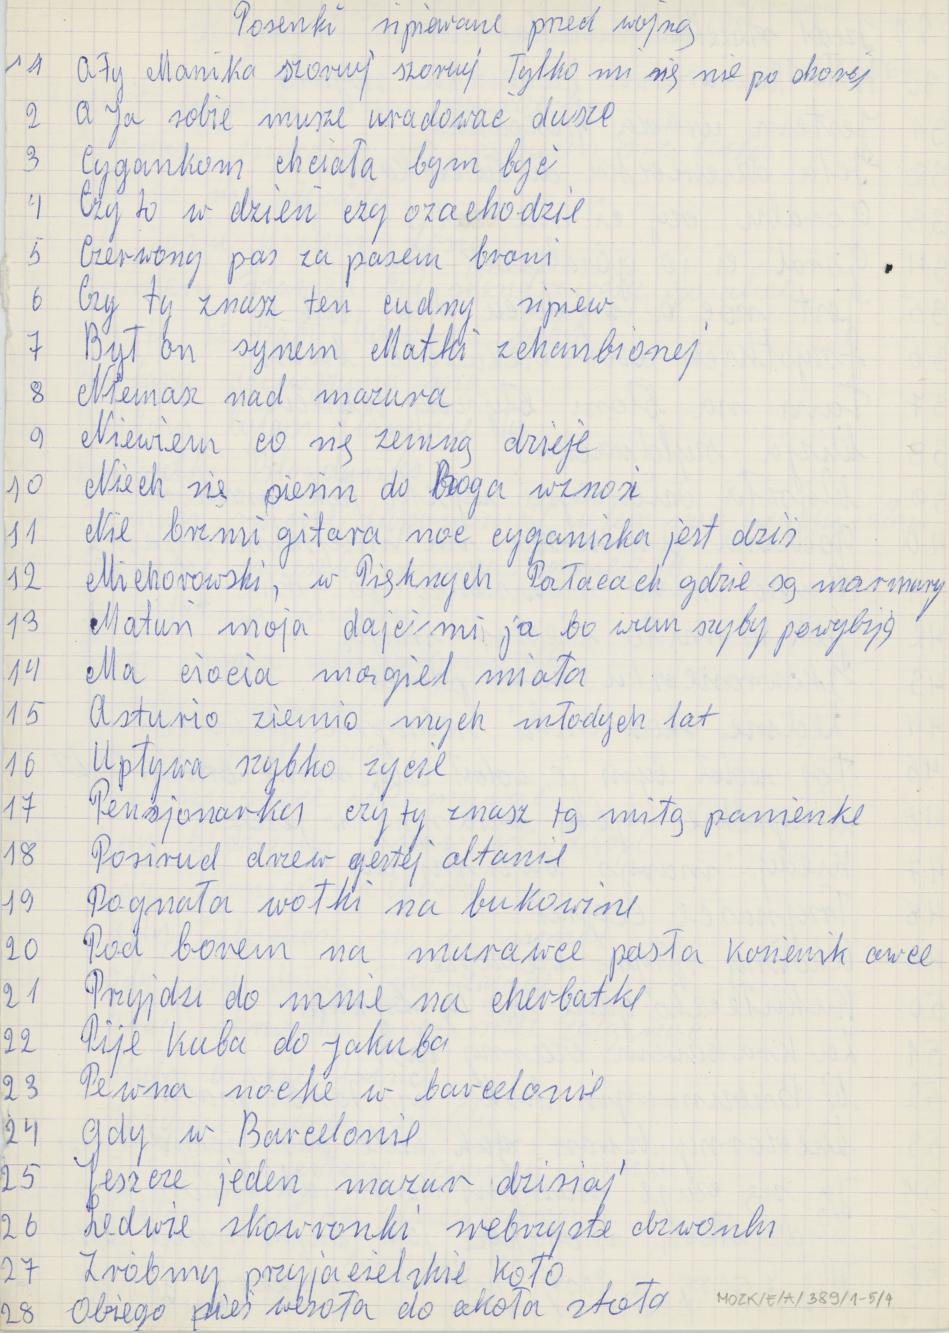 Posenki sipiewane przed wojną
11 A Ty Manika szoruj szoruj Tylko mi się nie po choruj
2 A Ja sobie musze uradować dusze
3 Cygankom chciała bym być
4 Czy to w dzień czy ozachodzie
5 Czerwony pas za pasem broni
6 Czy ty znasz ten cudny sipiew
7 Był on synem Matki zchanbionej
8 Niemasz nad mazura
9 Niewiem co się zemną dzieje
10 Niech się piesin do Boga wznosi
11 Nie brzmi gitara noc cyganizka jest dziś
12 Michorowski, w Pięknych Pałacach gdzie są marmury
13 Matuń moja dajci mi ja bo wum szyby powybiją
14 Ma ciocia magiel miała
15 Asturio ziemio mych młodych lat
16 Upływa szybko zycie
17 Pensjonarka czy ty znasz tą miłą panienke
18 Posirud drzew gęstej altanie
19 Pognała wołki na bukowine
20 Pod borem na murawce pasła owce
21 Przyjdzi do mnie na cherbatke
22 Pije Kuba do jakuba
23 Pewna nocke w barcelonie
24 gdy w Barcelonie
25 Jeszcze jeden mazur dzisiaj
26 Ledwie skowronki srebrzyste dzwonki
27 Zróbmy przyjacielskie Koło
28 Obiego pieś wesoła do okoła stoła
MOZK/E/A/389/1-5/1